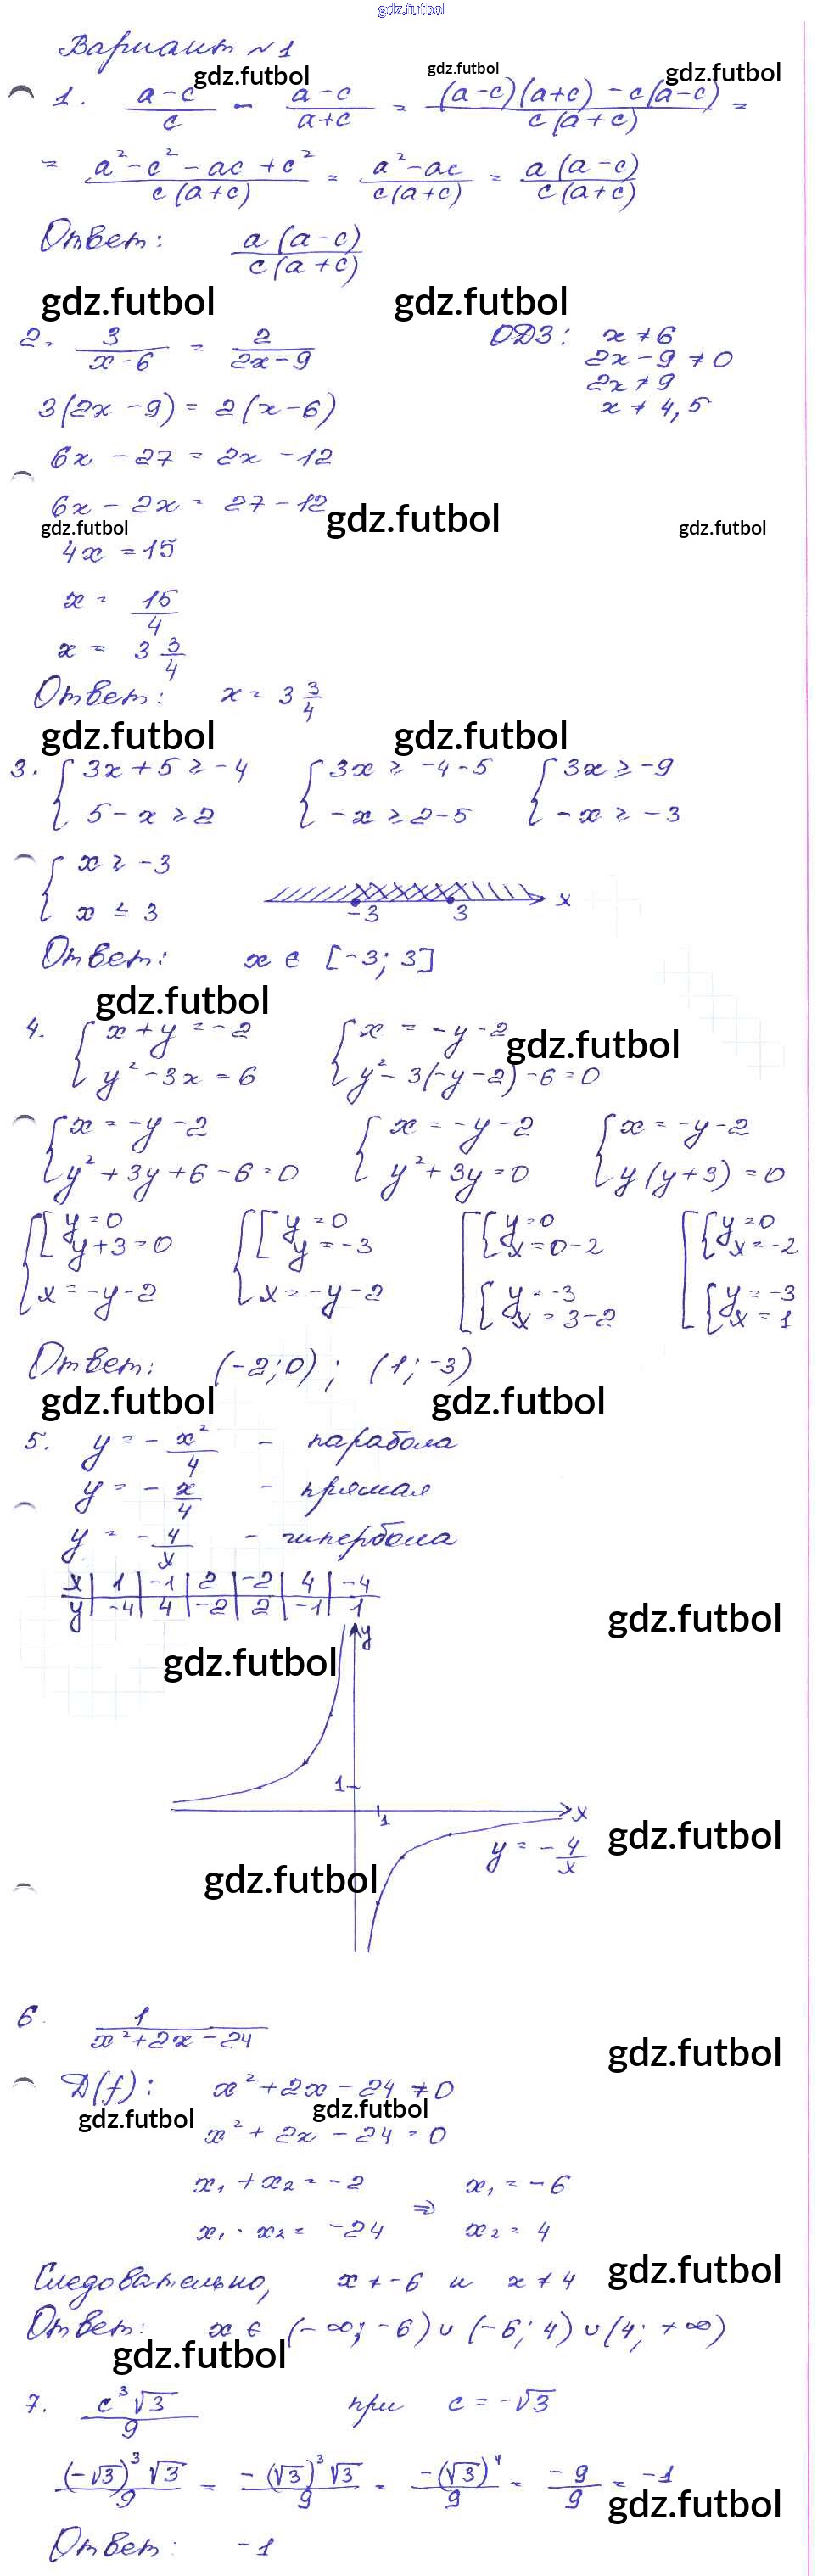 gdz.futbol
Вариант №1
gdz.futbol gdz.futbol gdz.futbol
1. (a-c)/c - (a-c)/(a+c) = ((a-c)(a+c) - c(a-c))/(c(a+c)) =
= (a²-c²-ac+c²)/(c(a+c)) = (a²-ac)/(c(a+c)) = (a(a-c))/(c(a+c))
Ответ: (a(a-c))/(c(a+c))
gdz.futbol gdz.futbol
2. 3/(x-6) = 2/(2x-9) ОДЗ: x ≠ 6
2x-9 ≠ 0
2x ≠ 9
3(2x-9) = 2(x-6) x ≠ 4,5
6x - 27 = 2x - 12
6x - 2x = 27 - 12 gdz.futbol
gdz.futbol gdz.futbol
4x = 15
x = 15/4
x = 3 3/4
Ответ: x = 3 3/4
gdz.futbol gdz.futbol
3. { 3x+5 ≥ -4 { 3x ≥ -4-5 { 3x ≥ -9
5-x ≥ 2 -x ≥ 2-5 -x ≥ -3
{ x ≥ -3
x ≤ 3 -3 3 x
Ответ: x ∈ [-3; 3]
gdz.futbol
4. { x+y = -2 { x = -y-2
gdz.futbol
y²-3x = 6 y²-3(-y-2)-6=0
{ x = -y-2 { x = -y-2 { x = -y-2
y²+3y+6-6=0 y²+3y=0 y(y+3)=0
{ [ y=0 { [ y=0 [ { y=0 [ { y=0
y+3=0 y=-3 x=0-2 x=-2
x=-y-2 x=-y-2 { y=-3 { y=-3
x=3-2 x=1
Ответ: (-2;0); (1;-3)
gdz.futbol gdz.futbol
5. y = -x²/4 - парабола
y = -x/4 - прямая
y = -4/x - гипербола
x | 1 | -1 | 2 | -2 | 4 | -4
y | -4 | 4 | -2 | 2 | -1 | 1
gdz.futbol
y
gdz.futbol
1
1 x
y = -4/x gdz.futbol
gdz.futbol
6. 1/(x²+2x-24)
gdz.futbol
D(f): x²+2x-24 ≠ 0
gdz.futbol gdz.futbol
x²+2x-24=0
x₁+x₂=-2 ⇒ x₁=-6
x₁·x₂=-24 x₂=4
Следовательно, x ≠ -6 и x ≠ 4 gdz.futbol
Ответ: x ∈ (-∞; -6) ∪ (-6; 4) ∪ (4; +∞)
gdz.futbol
7. (c³√3)/9 при c = -√3
((-√3)³√3)/9 = (-(√3)³√3)/9 = (-(√3)⁴)/9 = -9/9 = -1
gdz.futbol
Ответ: -1